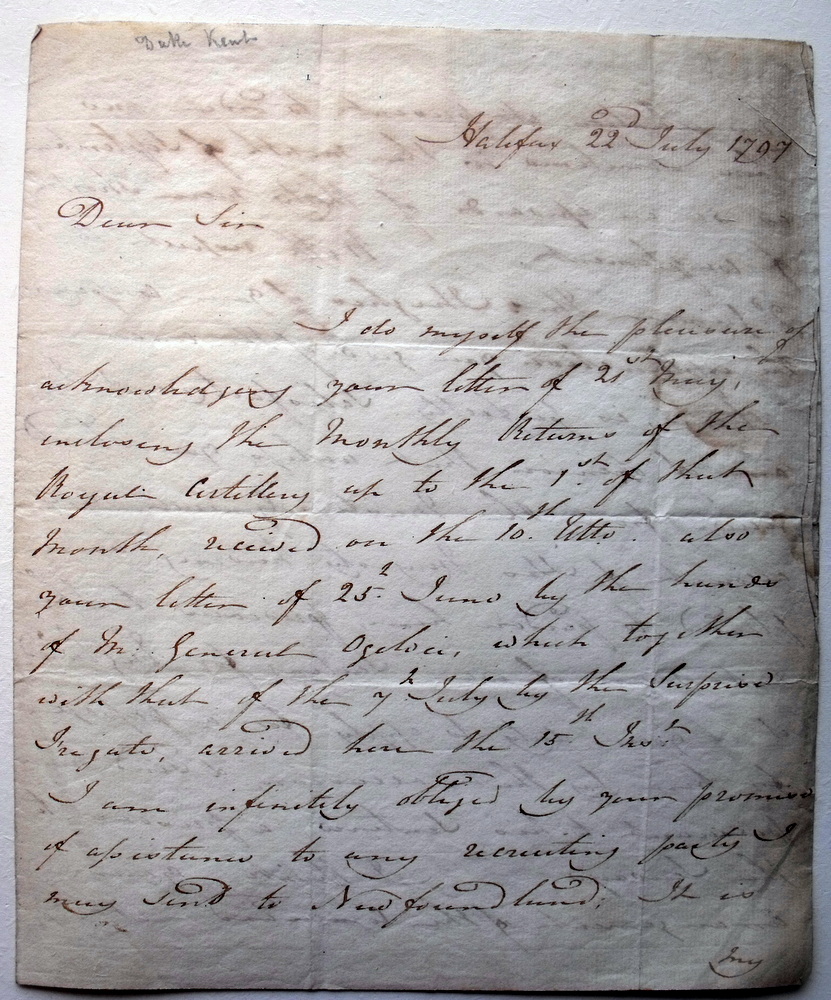 Duke Kent
Halifax 22d July 1797
Dear Sir
I do myself the pleasure of
acknowledging your letter of 21st May,
inclosing the Monthly Returns of the
Royal Artillery up to the 1st of that
Month, received on the 10th Ulto. also
your letter of 25th June by the hands
of M. General Ogelvie, which together
with that of the 7th July by the Surprise
Frigate, arrived here the 15th Inst.
I am infinitely obliged by your promise
of assistance to any recruiting party I
may send to Newfoundland; It is
my